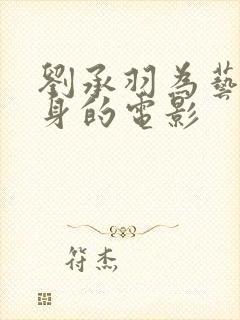 劉承羽為藝
身的電影
符杰